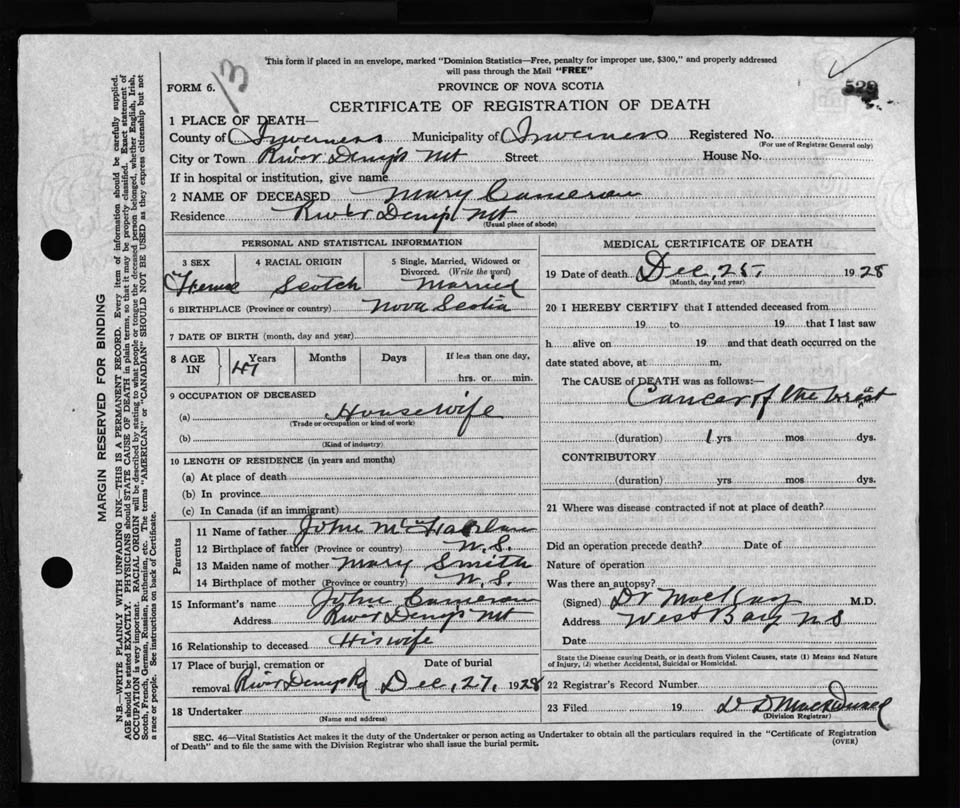 This form if placed in an envelope, marked "Dominion Statistics—Free, penalty for improper use, $300," and properly addressed
will pass through the Mail "FREE"
FORM 6.
13
PROVINCE OF NOVA SCOTIA
529
CERTIFICATE OF REGISTRATION OF DEATH
1 PLACE OF DEATH—
County of Inverness Municipality of Inverness Registered No.
(For use of Registrar General only)
City or Town River Denys Mt Street House No.
If in hospital or institution, give name
2 NAME OF DECEASED Mary Cameron
Residence River Denys Mt
(Usual place of abode)
PERSONAL AND STATISTICAL INFORMATION
3 SEX 4 RACIAL ORIGIN 5 Single, Married, Widowed or
Divorced. (Write the word)
Scotch Married
6 BIRTHPLACE (Province or country) Nova Scotia
7 DATE OF BIRTH (month, day and year)
8 AGE IN 47 Years Months Days If less than one day,
hrs. or min.
9 OCCUPATION OF DECEASED
(a) Housewife
(Trade or occupation or kind of work)
(b)
(Kind of industry)
10 LENGTH OF RESIDENCE (in years and months)
(a) At place of death
(b) In province
(c) In Canada (if an immigrant)
Parents
11 Name of father John
12 Birthplace of father (Province or country) N.S.
13 Maiden name of mother Mary Smith
14 Birthplace of mother (Province or country) N.S.
15 Informant's name John Cameron
Address River Denys Mt
16 Relationship to deceased His wife
17 Place of burial, cremation or Date of burial
removal River Denys Rd Dec, 27, 1928
18 Undertaker
(Name and address)
MEDICAL CERTIFICATE OF DEATH
19 Date of death Dec, 25, 1928
(Month, day and year)
20 I HEREBY CERTIFY that I attended deceased from
19 to 19 that I last saw
h alive on 19 and that death occurred on the
date stated above, at m.
The CAUSE of DEATH was as follows:—
Cancer of the brest
(duration) 1 yrs mos dys.
CONTRIBUTORY
(duration) yrs mos dys.
21 Where was disease contracted if not at place of death?
Did an operation precede death? Date of
Nature of operation
Was there an autopsy?
(Signed) Dr MacKay M.D.
Address West Bay N S
Date
State the Disease causing Death, or in death from Violent Causes, state (1) Means and Nature
of Injury, (2) whether Accidental, Suicidal or Homicidal.
22 Registrar's Record Number
23 Filed 19
(Division Registrar)
SEC. 46—Vital Statistics Act makes it the duty of the Undertaker or person acting as Undertaker to obtain all the particulars required in the "Certificate of Registration
of Death" and to file the same with the Division Registrar who shall issue the burial permit. (OVER)
MARGIN RESERVED FOR BINDING
N.B.—WRITE PLAINLY WITH UNFADING INK—THIS IS A PERMANENT RECORD. Every item of information should be carefully supplied.
AGE should be stated EXACTLY. PHYSICIANS should STATE CAUSE OF DEATH in plain terms, so that it may be properly classified. Exact statement of
OCCUPATION is very important. RACIAL ORIGIN will be described by stating to what people or tongue the deceased person belonged, whether English, Irish,
Scotch, French, German, Russian, Ruthenian, etc. The terms "AMERICAN" or "CANADIAN" SHOULD NOT BE USED as they express citizenship but not
a race or people. See instructions on back of Certificate.